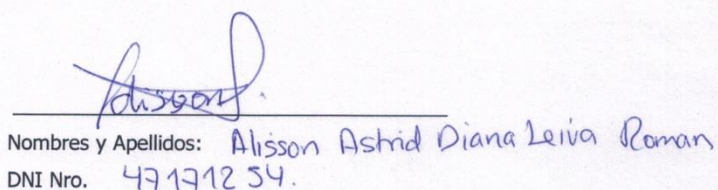 Alisson
Nombres y Apellidos: Alisson Astrid Diana Leiva Roman
DNI Nro. 47171254.